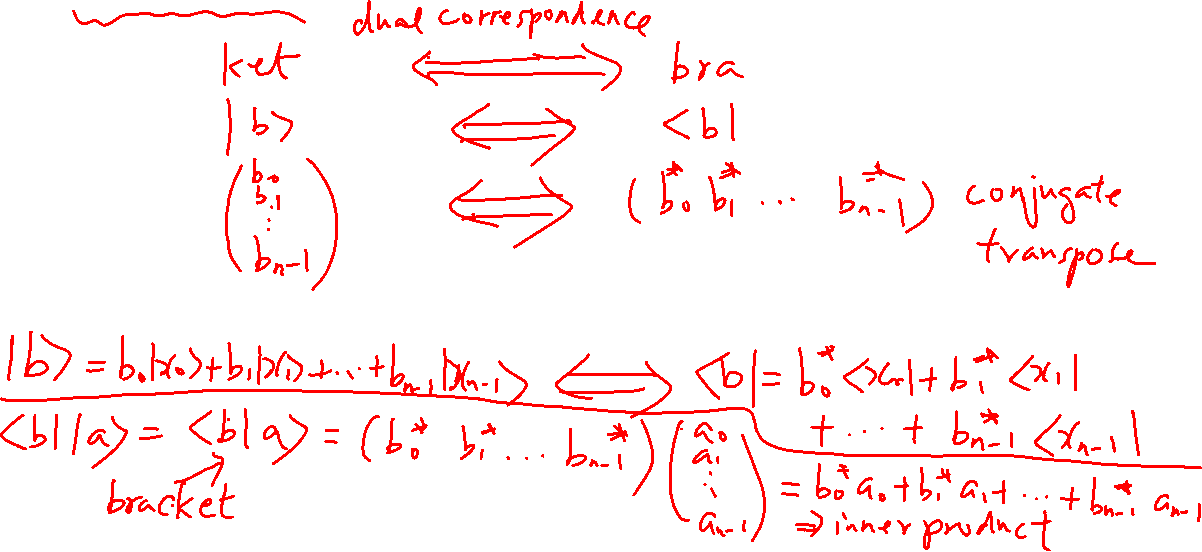 dual correspondence
ket ⟺ bra
|b> ⟺ <b|
(b₀ b₁ ⋮ bₙ₋₁) ⟺ (b₀* b₁* ... bₙ₋₁*) conjugate transpose
|b> = b₀|x₀>+b₁|x₁>+...+bₙ₋₁|xₙ₋₁> ⟺ <b| = b₀*<x₀|+b₁*<x₁|
+ ... + bₙ₋₁*<xₙ₋₁|
<b||a> = <b|a> = (b₀* b₁* ... bₙ₋₁*) (a₀ a₁ ⋮ aₙ₋₁) = b₀*a₀+b₁*a₁+...+bₙ₋₁*aₙ₋₁
bracket
⇒ inner product